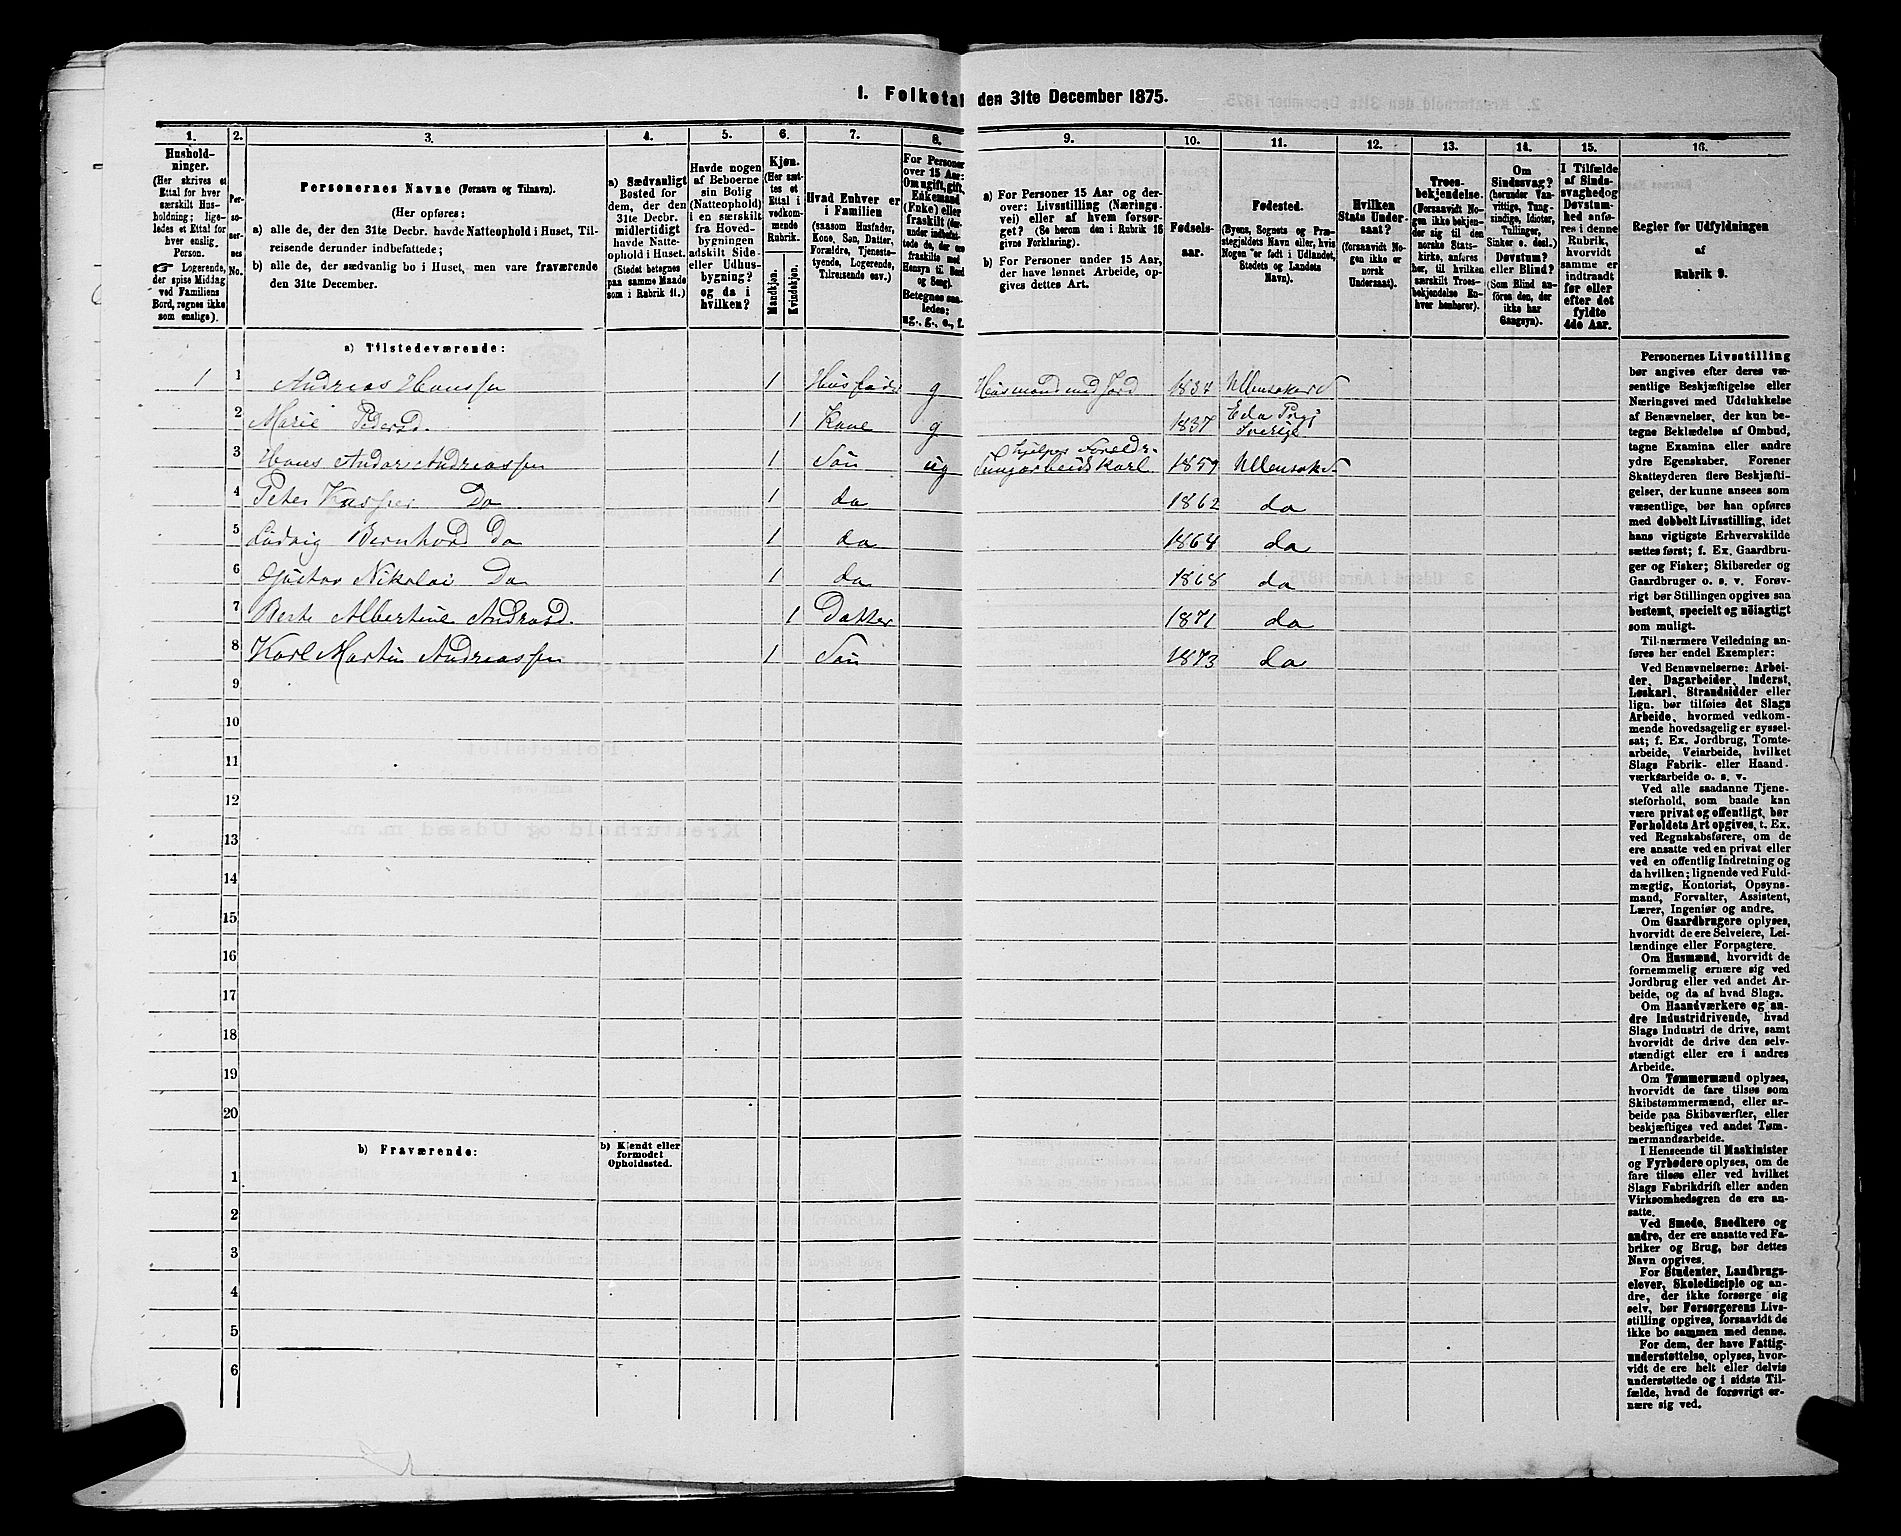 1. Folketal den 31te December 1875.
1.
Hushold-
ninger.
(Her skrives et
Ettal for hver
særskilt Hus-
holdning; lige-
ledes et Ettal for
hver enslig
Person.
☞ Logerende,
der spise Middag
ved Familiens
Bord, regnes ikke
som enslige).
2.
Per-
so-
ner-
nes
No.
3.
Personernes Navne (Fornavn og Tilnavn).
(Her opføres:
a) alle de, der den 31te Decbr. havde Natteophold i Huset, Til-
reisende derunder indbefattede;
b) alle de, der sædvanlig bo i Huset, men vare fraværende
den 31te December.
4.
a) Sædvanligt
Bosted for
dem, der den
31te Decbr.
midlertidigt
havde Natte-
ophold i Huset.
(Stedet betegnes
paa samme Maade
som i Rubrik 11.)
5.
Havde nogen
af Beboerne
sin Bolig
(Natteophold)
i en særskilt
fra Hoved-
bygningen
adskilt Side-
eller Udhus-
bygning?
og da i
hvilken?
6.
Kjøn.
(Her sæt-
tes et
Ettal i
vedkom-
mende
Rubrik.
Mandkjøn.
Kvindekjøn.
7.
Hvad Enhver er
i Familien
(saasom Husfader,
Kone, Søn, Datter,
Forældre, Tjeneste-
tyende, Logerende,
Tilreisende osv.)
8.
For Personer
over 15 Aar:
Om ugift, gift,
Enkemand
(Enke) eller
fraskilt (der-
under indbefat-
tede de, der ere
fraskilte med
Hensyn til Bord
og Seng).
Betegnes saa-
ledes:
ug., g., e., f.
9.
a) For Personer 15 Aar og der-
over: Livsstilling (Nærings-
vei) eller af hvem forsør-
get? (Se herom den i Rubrik 16
givne Forklaring).
b) For Personer under 15 Aar,
der have lønnet Arbeide, op-
gives dettes Art.
10.
Fødsels-
aar.
11.
Fødested.
(Byens, Sognets og Præ-
stegjeldets Navn eller, hvis
Nogen er født i Udlandet,
Stedets og Landets
Navn).
12.
Hvilken
Stats Under-
saat?
(forsaavidt No-
gen ikke er
norsk
Undersaat).
13.
Troes-
bekjendelse.
(Forsaavidt No-
gen ikke bekjen-
der sig til den
norske Stats-
kirke, anføres
her, til hvilken
særskilt Troes-
bekjendelse En-
hver henhører).
14.
Om
Sindssvag?
(herunder Van-
vittige, Tung-
sindige, Idioter,
Tullinger,
Sinker o. desl.)
Døvstum?
eller Blind?
(Som Blind an-
føres den, der
ikke har
Gangsyn).
15.
I Tilfælde
af Sinds-
svaghed og
Døvstum-
hed anfø-
res i denne
Rubrik,
hvorvidt
samme er
indtraadt
før eller
efter det
fyldte
4de Aar.
16.
Regler for Udfyldningen
af
Rubrik 9.
a) Tilstedeværende:
1 1 Andreas Hanssen 1 Husfader g Husmand med Jord 1834 Ullensaker
2 Marie Pedersd. 1 Kone g 1837 Eda Prgj Sverige
3 Hans Anders Andreassen 1 Søn ug 1859 Ullensaker
4 Peter Kasper Do 1 do 1862 do
5 Ludvig Bernhard Do 1 do 1864 do
6 Gustav Nikolai Do 1 do 1868 do
7 Berte Albertine Andreasd. 1 Datter 1871 do
8 Karl Martin Andreassen 1 Søn 1873 do
9
10
11
12
13
14
15
16
17
18
19
20
b) Fraværende:
b) Kjendt eller
formodet
Opholdssted.
1
2
3
4
5
6
Personernes Livsstilling
bør angives efter deres væ-
sentlige Beskjæftigelse eller
Næringsvei med Udelukkelse
af Benævnelser, der kun be-
tegne Beklædelse af Ombud,
tagne Examina eller andre
ydre Egenskaber. Forener
Skatteyderen flere Beskjæfti-
gelser, der kunne ansees som
væsentlige, bør han opføres
med dobbelt Livsstilling, idet
hans vigtigste Erhvervskilde
sættes først; f. Ex. Gaardbru-
ger og Fisker; Skibsreder og
Gaardbruger o. s. v. Forøv-
rigt bør Stillingen opgives saa
bestemt, specielt og nøiagtigt
som muligt.
Til nærmere Veiledning an-
føres her endel Exempler:
Ved Benævnelserne: Arbei-
der, Dagarbeider, Inderst,
Løskarl, Strandsidder eller
lign. bør tilføies det Slags
Arbeide, hvormed vedkom-
mende hovedsagelig er syssel-
sat; f. Ex. Jordbrug, Tomte-
arbeide, Veiarbeide, hvilket
Slags Fabrik- eller Haand-
værksarbeide o. s. v.
Ved alle saadanne Tjene-
steforhold, som baade kan
være privat og offentligt, bør
Forholdets Art opgives, t. Ex.
ved Regnskabsførere, om de
ere ansatte ved en privat eller
ved en offentlig Indretning og
da hvilken; lignende ved Fuld-
mægtig, Kontorist, Opsyns-
mand, Forvalter, Assistent,
Lærer, Ingeniør og andre.
Om Gaardbrugere oplyses,
hvorvidt de ere Selveiere, Lei-
lændinge eller Forpagtere.
Om Husmænd, hvorvidt de
fornemmelig ernære sig ved
Jordbrug eller ved andet Ar-
beide, og da af hvad Slags.
Om Haandværkere og an-
dre Industridrivende, hvad
Slags Industri de drive, samt
hvorvidt de drive den selv-
stændigt eller ere i andres
Arbeide.
Om Tømmermænd oplyses,
hvorvidt de fare tilsøs som
Skibstømmermænd, eller ar-
beide paa Skibsværfter, eller
beskjæftiges ved andet Tøm-
mermandsarbeide.
I Henseende til Maskinister
og Fyrbødere oplyses, om de
fare tilsøs eller ved hvilket
Slags Fabrikdrift eller anden
Virksomhedsgren de ere an-
satte.
Ved Smede, Snedkere og
andre, der ere ansatte ved Fa-
briker og Brug, bør dettes
Navn opgives.
For Studenter, Landbrugs-
elever, Skoledisciple og an-
dre, der ikke forsørge sig
selv, bør Forsørgerens Livs-
stilling opgives, forsaavidt de
ikke bo sammen med denne.
For dem, der have Fattig-
understøttelse, oplyses, hvor-
vidt de ere helt eller delvis
understøttede og i sidste Til-
fælde, hvad de forøvrigt er-
nære sig ved.